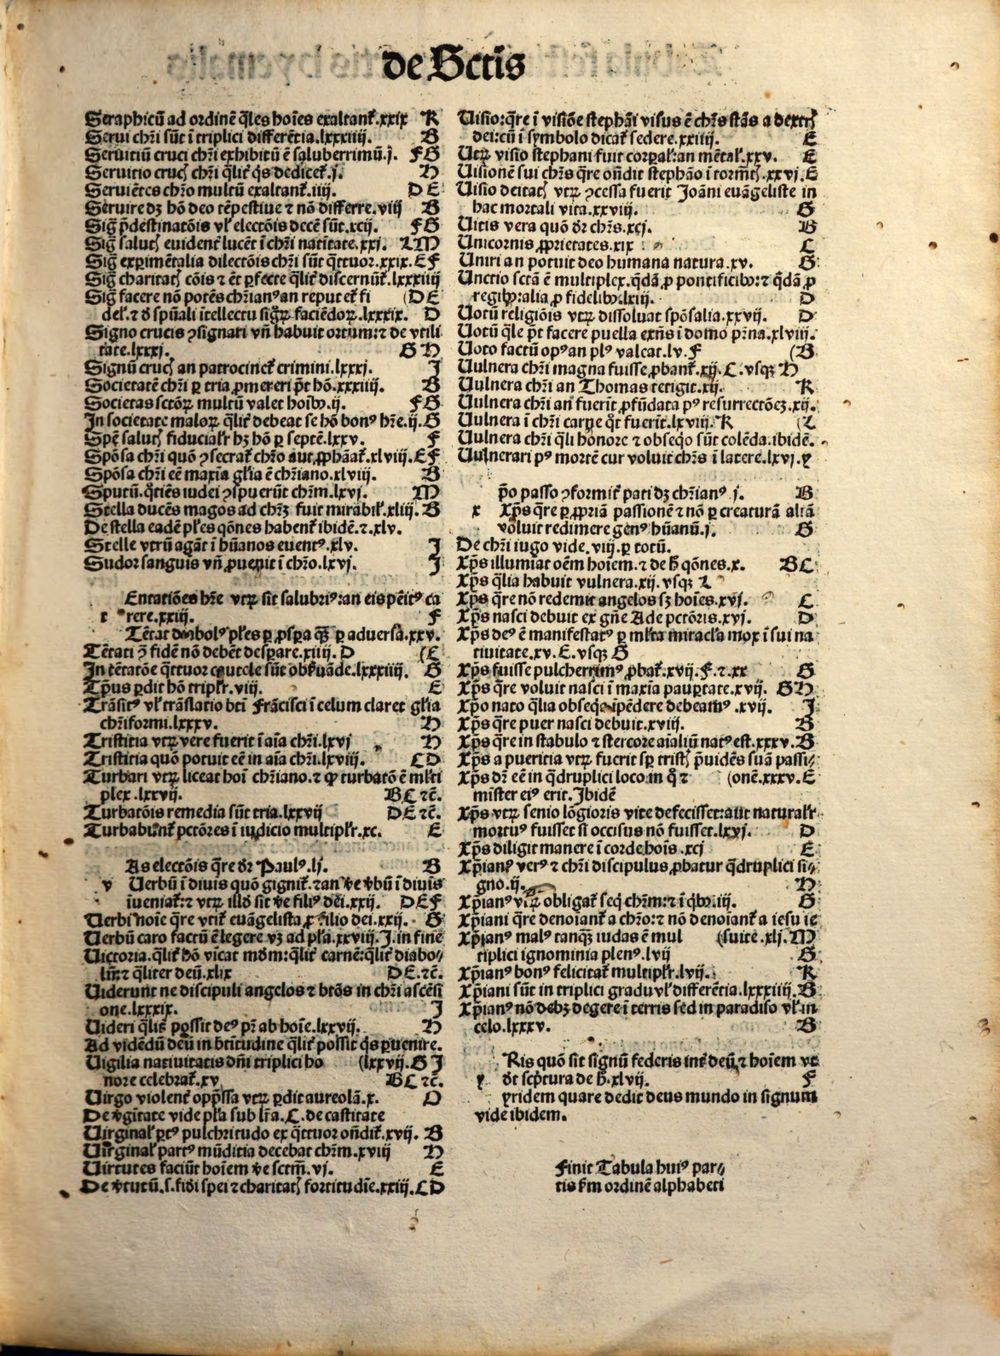 de Sctis
Seraphicū ad ordinē q̄les hoīes exaltant᷑.xxix K
Serui chr̄i sūt ī triplici differētia.lxxxiiij. B
Seruitiū cruci chr̄i exhibitū ē saluberrimū.j. FG
Seruitio crucꝭ chr̄i q̄lit᷑ q̄s dedicet᷑.j. H
Seruiētes chr̄o multū exaltant᷑.iiij. DE
Seruire dꝫ hō deo tēpestiue ⁊ nō differre.viij B
Siḡ p̄destinatōis vl᷑ electōis decē sūt.xcij. FG
Siḡ salutꝭ euident᷑ lucēt ī chr̄i natiuitate.xxj. LM
Siḡ exp̄imētalia dilectōis chr̄i sūt q̄ttuor.xxix.EF
Siḡ charitatꝭ cōis ⁊ ēt ꝑfecte q̄lit᷑ discernūt᷑.lxxxiiij
Siḡ facere nō potēs chr̄ianꝰ an reputet᷑ fi (DE
del᷑.⁊ d̄ spūali ītellectu signoꝝ faciēdoꝝ.lxxxix. D
Signo crucis ↄsignati vn̄ habuit ortum:⁊ de vtili
tate.lxxxj. GH
Signū crucꝭ an patrocinet᷑ crimini.lxxxj. I
Societatē chr̄i ꝑ tria ꝓmereri pōt hō.xxxiiij. B
Societas sctōꝝ multū valet hoībꝰ.ij. FG
In societate maloꝝ q̄lit᷑ debeat se hō bonꝰ hr̄e.ij. G
Spē salutꝭ fiducialr̄ hꝫ hō ꝑ septē.lxxv. F
Spōsa chr̄i quō ↄsecrat᷑ chr̄o aut ꝓphāat᷑.xlviij.EF
Spōsā chr̄i eē maxīa gl̄ia ē chr̄iano.xlviij. B
Sputū.q̄tiēs iudei ↄspuerūt chr̄m.lxvj. M
Stella ducēs magos ad chr̄ꝫ fuit mirabil᷑.xliij. B
De stella eadē pl̄es qōnes habent᷑ ibidē.⁊.xlv.
Stelle vtrū agāt ī hūanos euentꝰ.xlv. I
Sudor sanguis vn̄ ꝓuenit ī chr̄o.lxvj. I
Entatiōes hr̄e vtꝝ sit salubriꝰ:an eis pēitꝰ ca
t rere.xxiij. F
Tētat diabolꝰ pl̄es ꝑ ꝓspera q̄ꝫ ꝑ aduersa.xxv.
Tētati ↄ̄ fidē nō debēt despare.xiiij. D (E
In tētatōe q̄ttuor cautele sūt obẜuāde.lxxxiiij. G
Tp̄us ꝑdit hō triplr̄.viij. E
Trāsitꝰ vl᷑ trāslatio bt̄i Frācisci ī celum claret gl̄ia
chr̄iformi.lxxxv. H
Tristitia vtꝝ vere fuerit ī aīa chr̄i.lxvj H
Tristitia quō potuit eē in aīa chr̄i.lxviij. CD
Turbari vtꝝ liceat hoī chr̄iano.⁊ ꝙ turbatō ē ml̄ti
plex.lxxvij. BC ⁊c̄.
Turbatōis remedia sūt tria.lxxvij DE ⁊c̄.
Turbabūnt᷑ pctōres ī iudicio multiplr̄.xc. E
As electōis q̄re dr̄ Paulꝰ.lj. B
v Uerbū ī diuis quō gignit᷑.⁊ an v̄e v̄bū ī diuis
iueniat᷑:⁊ vtꝝ illd̄ sit v̄e filiꝰ dei.xxij. DEF
Uerbi noīe q̄re vtit᷑ euāgelista ꝓ filio dei.xxij. G
Uerbū caro factū ē legere vꝫ ad pl̄a.xxviij.J.in fine
Uictoria.q̄lit᷑ hō vicat mūdm:q̄lit᷑ carnē:q̄lit᷑ diabo⸗
lū:⁊ q̄liter deū.xlix DE.⁊c̄.
Uiderunt ne discipuli angelos ⁊ btōs in chr̄i ascēsi
one.lxxxix. I
Uideri q̄lit᷑ possit deꝰ pr̄ ab hoīe.lxxvij. H
Ad vidēdū deū in bt̄itudine q̄lit᷑ possit q̄s ꝑuenire.
Uigilia natiuitatis dn̄i triplici ho (lxxvij.GI
nore celebrat᷑.xv BC ⁊c̄.
Uirgo violent᷑ opp̄ssa vtꝝ ꝑdit aureolā.x. O
De v̄gītate vide pl̄a sub lr̄a.C.de castitate
Uirginal᷑ ꝑtꝰ pulchritudo ex q̄ttuor oñdit᷑.xvij. B
Uirginal᷑ partꝰ mūditia decebat chr̄m.xviij H
Uirtutes faciūt hoīem v̄e sctm̄.vj. E
De v̄tutū.s.fidi spei ⁊ charitatꝭ fortitudīe.xxiij.CD
Uisio:q̄re ī visiōe stephāi visus ē chr̄s stās a dextrꝭ
dei:cū ī symbolo dicat᷑ sedere.xxiiij. E
Utꝝ visio stephani fuit corꝑal᷑:an mētal᷑.xxv. E
Uisionē sui chr̄s q̄re oñdit stephāo ī tormētꝭ.xxvj.E
Uisio deitatꝭ vtꝝ ↄcessa fuerit Joāni euāgeliste in
hac mortali vita.xxviij. G
Uitis vera quō dr̄ chr̄s.xcj. B
Unicornis ꝓprietates.xix C
Uniri an potuit deo humana natura.xv. G
Unctio sctā ē multiplex.q̄dā ꝓ pontificibꝰ:⁊ q̄dā ꝓ
regibꝰ:alia ꝓ fidelibꝰ.lxij. D
Uotū religiōis vtꝝ dissoluat spōsalia.xxvij. D
Uotū q̄le pōt facere puella exn̄s ī domo pr̄na.xlviij.
Uoto factū opꝰ an plꝰ valeat.lv.F (B
Uulnera chr̄i magna fuisse ꝓbant᷑.xij.C.vsqꝫ H
Uulnera chr̄i an Thomas tetigit.xij. K
Uulnera chr̄i an fuerīt ꝓfūdata pꝰ resurrectōeꝫ.xij.
Uulnera ī chr̄i carne q̄t fuerīt.lxviij.K (L
Uulnera chr̄i q̄li honore ⁊ obseq̄o sūt colēda.ibidē.
Uulnerari pꝰ mortē cur voluit chr̄s ī latere.lxvj.P
p̄o passo ↄformit᷑ pati dꝫ chr̄ianꝰ.j. B
x Xp̄s q̄re ꝑ ꝓpriā passionē ⁊ nō ꝑ creaturā aliā
voluit redimere genꝰ hūanū.j. G
De chr̄i iugo vide.viij.ꝑ totū.
Xp̄s illumiat oēm hoīem.⁊ de h̄ qōnes.x. BC
Xp̄s q̄lia habuit vulnera.xij.vsqꝫ L
Xp̄s q̄re nō redemit angelos sꝫ hoīes.xvj. C
Xp̄s nasci debuit ex gn̄e Ade pctōris.xvj. D
Xp̄s deꝰ ē manifestatꝰ ꝑ ml̄ta miracl̄a mox ī sui na
tiuitate.xv.E.vsqꝫ G
Xp̄s fuisse pulcherrimꝰ ꝓbat᷑.xvij.F.⁊.xx G
Xp̄s q̄re voluit nasci ī maxīa pauꝑtate.xvij. GH
Xp̄o nato q̄lia obseq̄a īpēdere debeamꝰ.xvij. I
Xp̄s q̄re puer nasci debuit.xviij. B
Xp̄s q̄re in stabulo ⁊ stercore aīaliū natꝰ est.xxxv.B
Xp̄s a pueritia vtꝝ fuerit sꝑ tristꝭ p̄uidēs suā passi⸗
Xp̄s dr̄ eē in q̄druplici loco in q̄ ⁊ (onē.xxxv.E
mīster eiꝰ erit.Ibidē
Xp̄s vtꝝ senio lōgioris vite defecisset:aut naturalr̄
mortuꝰ fuisset si occisus nō fuisset.lxvj. D
Xp̄s diligit manere ī corde hoīs.xcj E
Xp̄ianꝰ verꝰ ⁊ chr̄i discipulus ꝓbatur q̄druplici si⸗
gno.ij. H
Xp̄ianꝰ vtꝝ obligat᷑ seq̄ chr̄m:⁊ ī q̄bꝰ.iij. G
Xp̄iani q̄re denoīant᷑ a chr̄o:⁊ nō denoīant᷑ a iesu ie
Xp̄ianꝰ malꝰ tanqꝫ iudas ē mul (suite.xlj.M
tiplici ignominia plenꝰ.lvij G
Xp̄ianꝰ bonꝰ felicitat᷑ multiplr̄.lvij. K
Xp̄iani sūt in triplici gradu vl᷑ differētia.lxxxiiij.B
Xp̄ianꝰ nō debꝫ degere ī terris sed in paradiso vl᷑ in
celo.lxxxv. B
Ris quō sit signū federis int᷑ deū ⁊ hoīem vt
y dr̄ scptura de h̄.xlvij. F
Yridem quare dedit deus mundo in signum
vide ibidem.
Finit Tabula huiꝰ par⸗
tis ẜm ordinē alphabeti